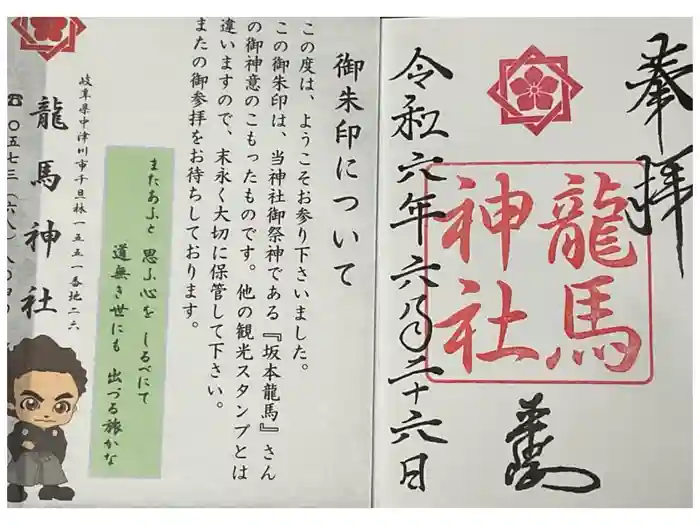 奉拝
龍馬
神社
令和六年六月二十六日
御朱印について
この度は、ようこそお参り下さいました。
この御朱印は、当神社御祭神である『坂本龍馬』さん
の御神意のこもったものです。他の観光スタンプとは
違いますので、末永く大切に保管して下さい。
またの御参拝をお待ちしております。
またあふと 思ふ心を しるべにて
道無き世にも 出づる旅かな
岐阜県中津川市千旦林一五五一番地二六
龍馬神社
☎〇五七三（六八）八〇